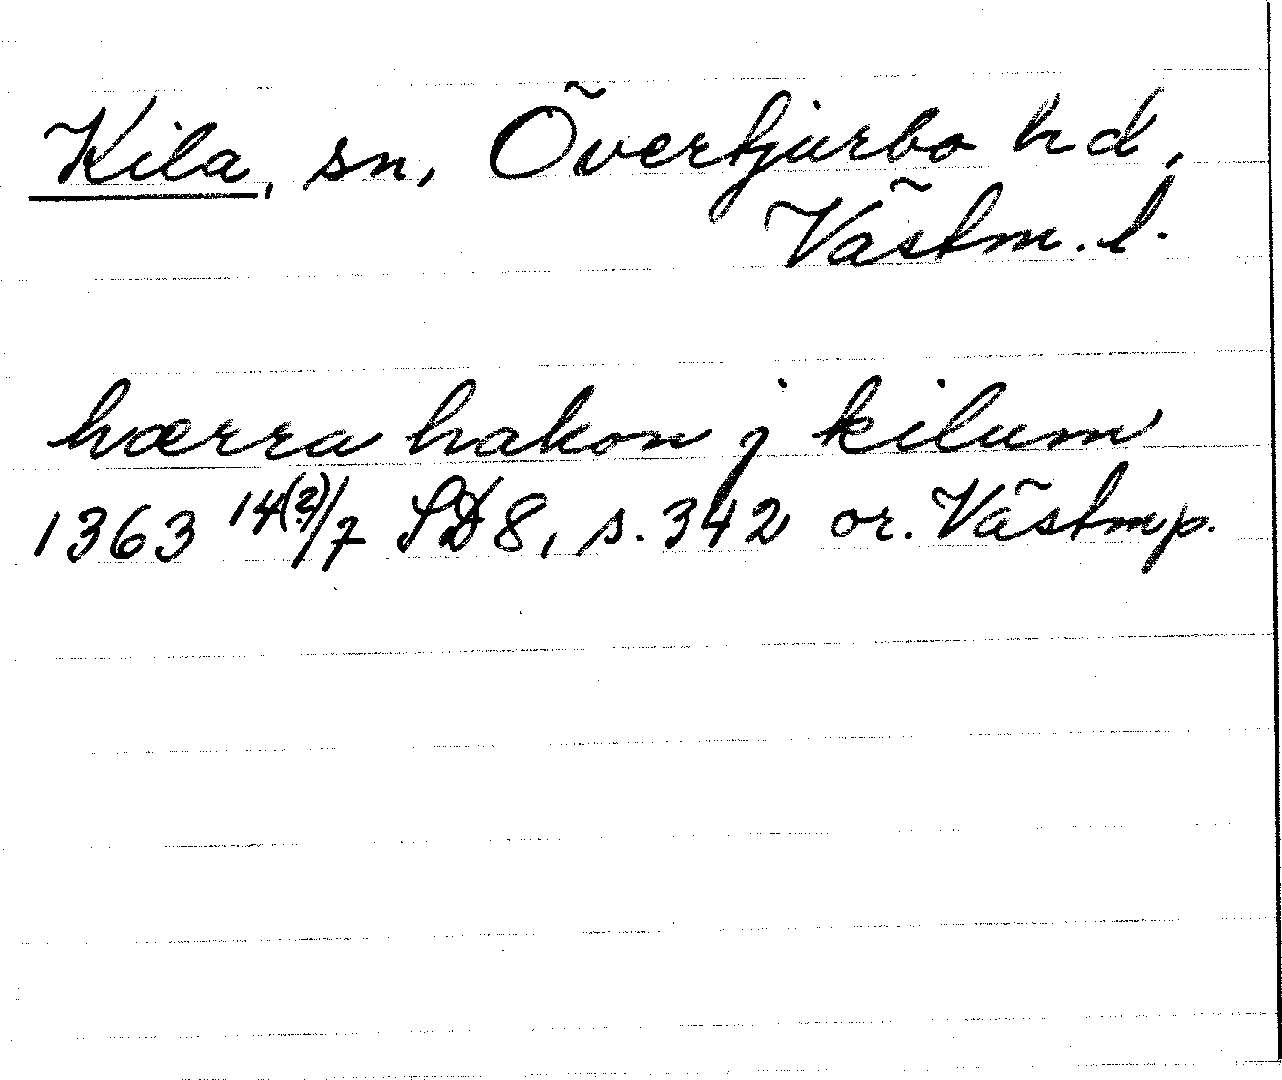 Kila, sn, Övertjurbo hd,
Västm. l.
hærra hakon j kilum
1363 14(?)/7 SD 8, s. 342 or. Västmp.